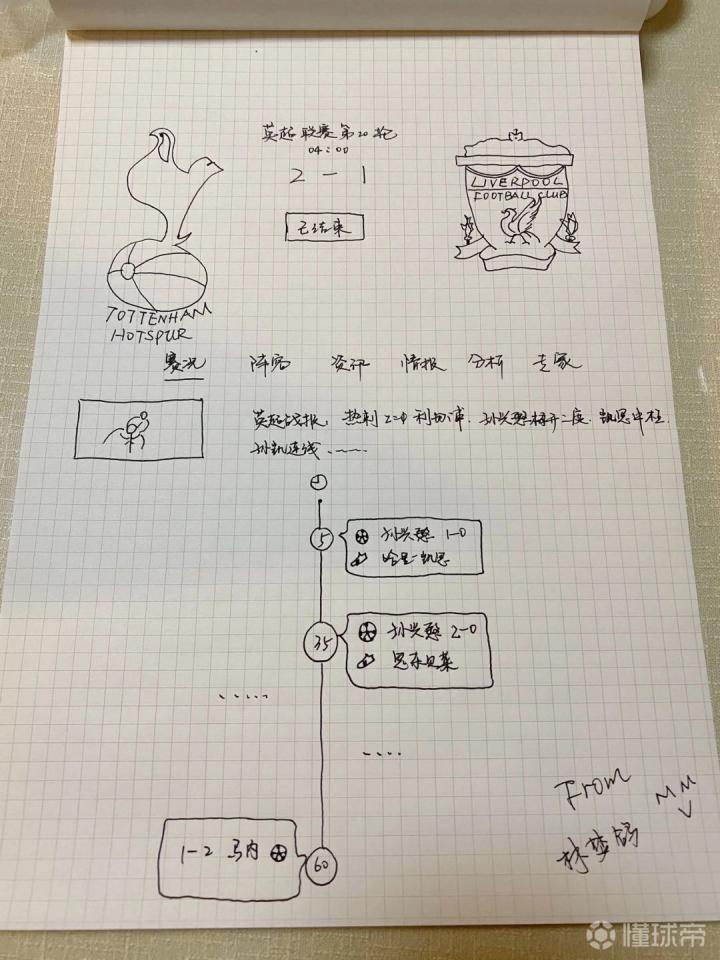 英超联赛第20轮
04:00
2-1
已结束
LIVERPOOL
FOOTBALL CLUB
TOTTENHAM
HOTSPUR
赛况 阵容 资讯 情报 分析 专家
英超战报: 热刺2-0利物浦. 孙兴慜梅开二度. 凯恩中柱.
孙凯连线……
5
孙兴慜 1-0
哈里-凯恩
35
孙兴慜 2-0
恩东贝莱
.....
....
1-2 马内
60
From
林
懂球帝